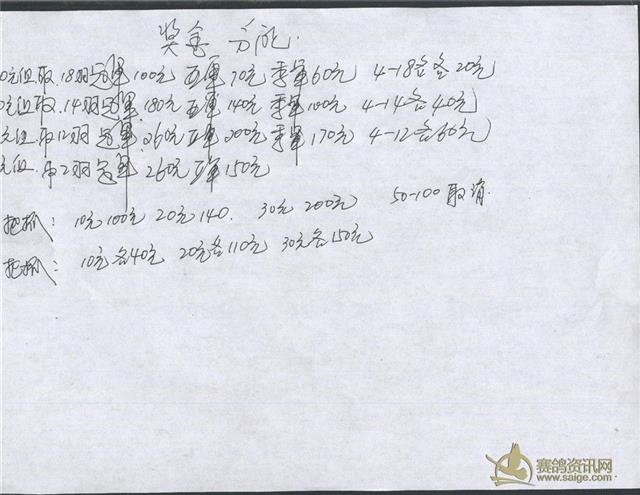 奖金分配.
0元组取18羽冠军100元 亚军70元 季军60元 4-18名各20元
0元组取.14羽冠军180元 亚军140元 季军100元 4-14名40元
元组取12羽冠军260元 亚军200元 季军170元 4-12名60元
元组.取2羽冠军260元 亚军150元
把抓: 10元100元 20元140. 30元200元 50-100取消.
把抓: 10元各40元 20元各110元 30元各150元
赛鸽资讯网
www.saige.com